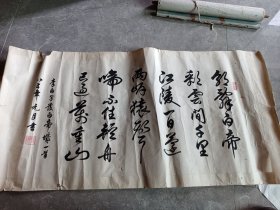 朝辞白帝
彩雲间千里
江陵一日還
两岸猿声
啼不住轻舟
已過萬重山
李白早發白帝城一首
元月書